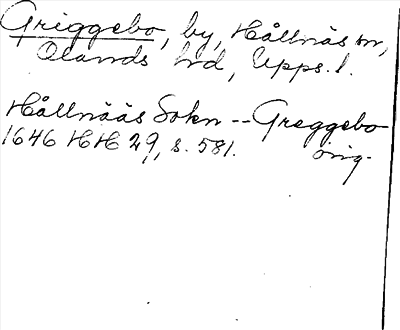 Griggebo, by, Hållnäs sn,
Olands hd, Upps. l.
Hållnääs Sokn -- Greggebo
1646 HH 29, s. 581. orig.